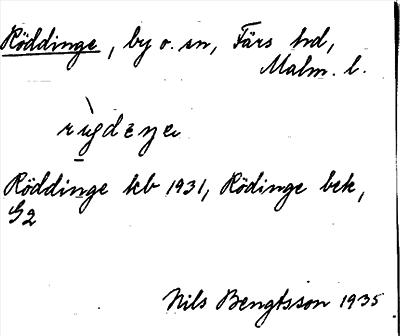 Röddinge, by o. sn, Färs hd,
Malm. l.
Röddinge kb 1931, Rödinge bek,
G2
Nils Bengtsson 1935